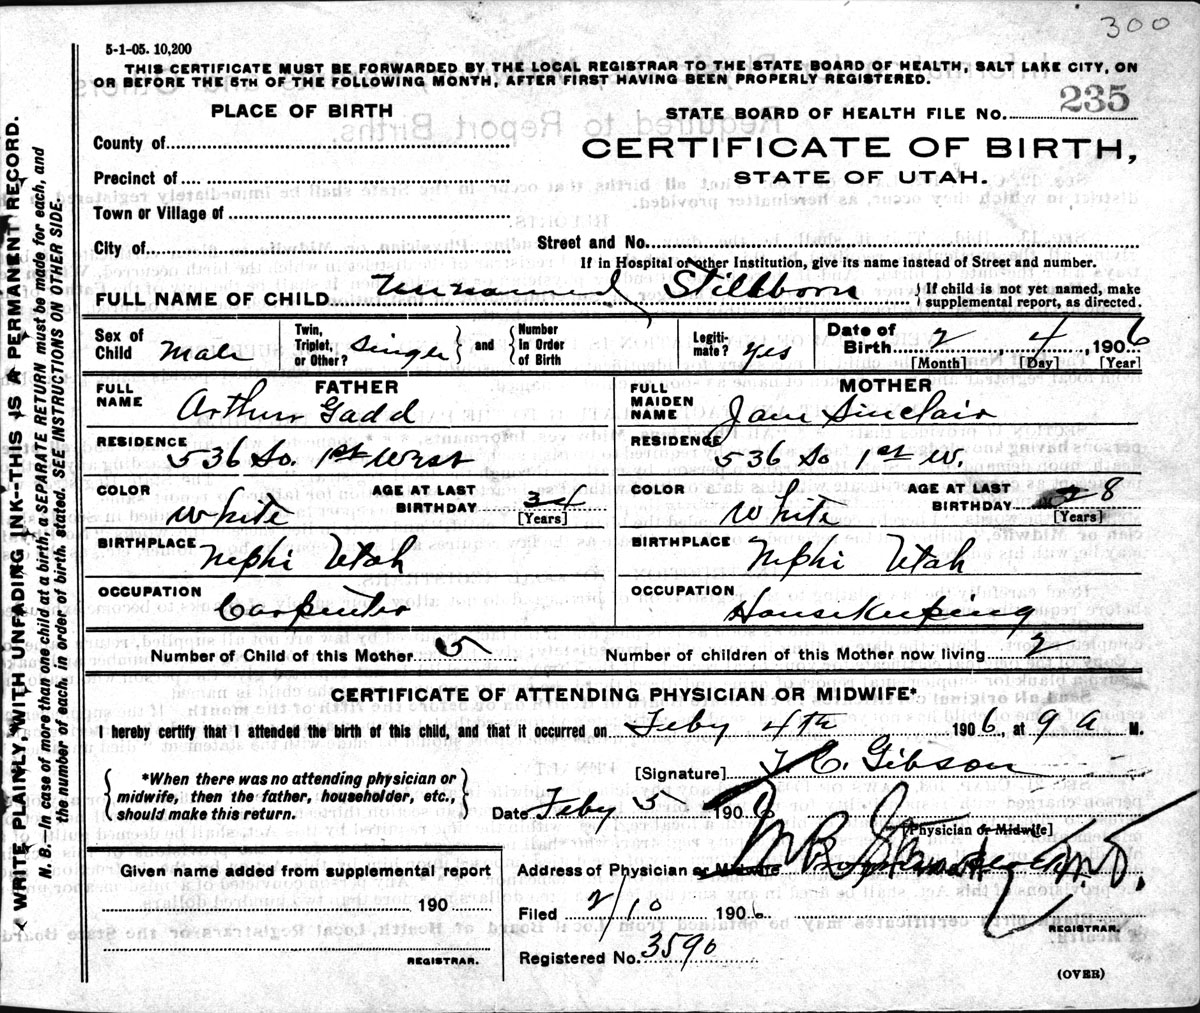 300
5-1-05. 10,200
THIS CERTIFICATE MUST BE FORWARDED BY THE LOCAL REGISTRAR TO THE STATE BOARD OF HEALTH, SALT LAKE CITY, ON
OR BEFORE THE 5TH OF THE FOLLOWING MONTH, AFTER FIRST HAVING BEEN PROPERLY REGISTERED.
PLACE OF BIRTH
STATE BOARD OF HEALTH FILE No. 235
County of
CERTIFICATE OF BIRTH,
Precinct of
STATE OF UTAH.
Town or Village of
City of
Street and No.
If in Hospital or other Institution, give its name instead of Street and number.
FULL NAME OF CHILD Unnamed Stillborn
If child is not yet named, make
supplemental report, as directed.
Sex of Child Male
Twin, Triplet, or Other? Single
and Number In Order of Birth
Legiti-mate? yes
Date of Birth 2 4 1906
[Month] [Day] [Year]
FATHER
FULL NAME Arthur Gadd
MOTHER
FULL MAIDEN NAME Jane Sinclair
RESIDENCE 536 So. 1st West
RESIDENCE 536 So 1st W.
COLOR White
AGE AT LAST BIRTHDAY 34 [Years]
COLOR White
AGE AT LAST BIRTHDAY 28 [Years]
BIRTHPLACE Nephi Utah
BIRTHPLACE Nephi Utah
OCCUPATION Carpenter
OCCUPATION Housekeeping
Number of Child of this Mother 5
Number of children of this Mother now living 2
CERTIFICATE OF ATTENDING PHYSICIAN OR MIDWIFE*
I hereby certify that I attended the birth of this child, and that it occurred on Feby 4th 1906, at 9 a M.
*When there was no attending physician or
midwife, then the father, householder, etc.,
should make this return.
[Signature] J. C. Gibson
Date Feby 5 1906
[Physician or Midwife]
Given name added from supplemental report
190
REGISTRAR.
Address of Physician or Midwife
Filed 2/10 1906.
REGISTRAR.
Registered No. 3590
(OVER)
WRITE PLAINLY WITH UNFADING INK--THIS IS A PERMANENT RECORD.
N. B. In case of more than one child at a birth, a SEPARATE RETURN must be made for each, and
the number of each, in order of birth, stated. SEE INSTRUCTIONS ON OTHER SIDE.